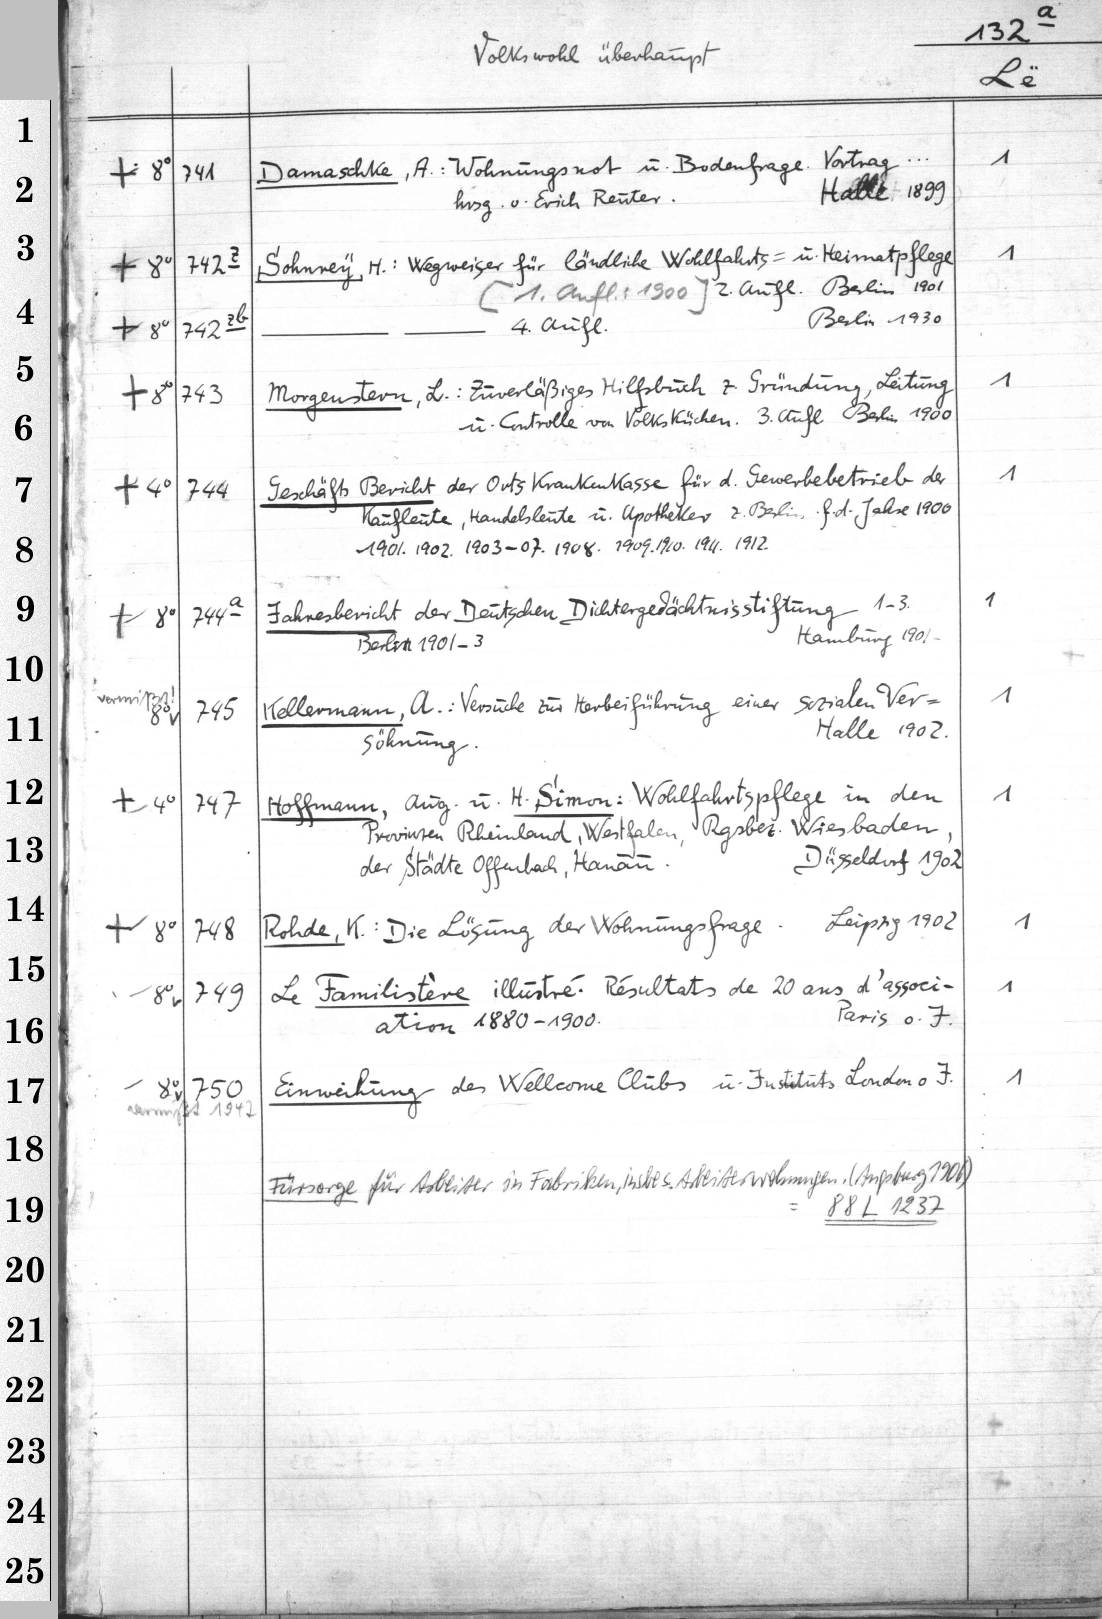 132 a
Volkswohl überhaupt
Lë
+ 8° 741 Damaschke, A.: Wohnungsnot u. Bodenfrage. Vortrag ... 1
hrsg. v. Erich Reuter. Halle 1899
+ 8° 742 z Sohnrey, H.: Wegweiser für ländliche Wohlfahrts= u. Heimatpflege 1
(1. Aufl.: 1900] 2. Aufl. Berlin 1901
+ 8° 742 zb 4. Aufl. Berlin 1930
+ 8° 743 Morgenstern, L.: Zuverläßiges Hilfsbuch z. Gründung, Leitung 1
u. Controlle von Volksküchen. 3. Aufl Berlin 1900
+ 4° 744 Geschäfts Bericht der Orts Krankenkasse für d. Gewerbebetrieb der 1
Kaufleute, Handelsleute u. Apotheker z. Berlin f. d. Jahre 1900
1901. 1902. 1903-07. 1908. 1909. 1910. 1911. 1912.
+ 8° 744 a Jahresbericht der Deutschen Dichtergedächtnisstiftung 1-3. 1
Berlin 1901-3 Hamburg 1901-
vermißt!
8° v 745 Kellermann, A.: Versuche zur Herbeiführung einer sozialen Ver= 1
söhnung. Halle 1902.
+ 4° 747 Hoffmann, Aug. u. H. Simon: Wohlfahrtspflege in den 1
Provinzen Rheinland, Westfalen, Rgsbez. Wiesbaden,
der Städte Offenbach, Hanau. Düsseldorf 1902
+ 8° 748 Rohde, K.: Die Lösung der Wohnungsfrage. Leipzig 1902 1
8° v 749 Le Familistère illustré. Résultats de 20 ans d'associ- 1
ation 1880-1900. Paris o. J.
8° v 750 Einweihung des Wellcome Clubs u. Instituts London o J. 1
vermißt 1942
Fürsorge für Arbeiter in Fabriken, insbes. Arbeiterwohnungen. (Augsburg 1906)
= 88 L 1237
1
2
3
4
5
6
7
8
9
10
11
12
13
14
15
16
17
18
19
20
21
22
23
24
25